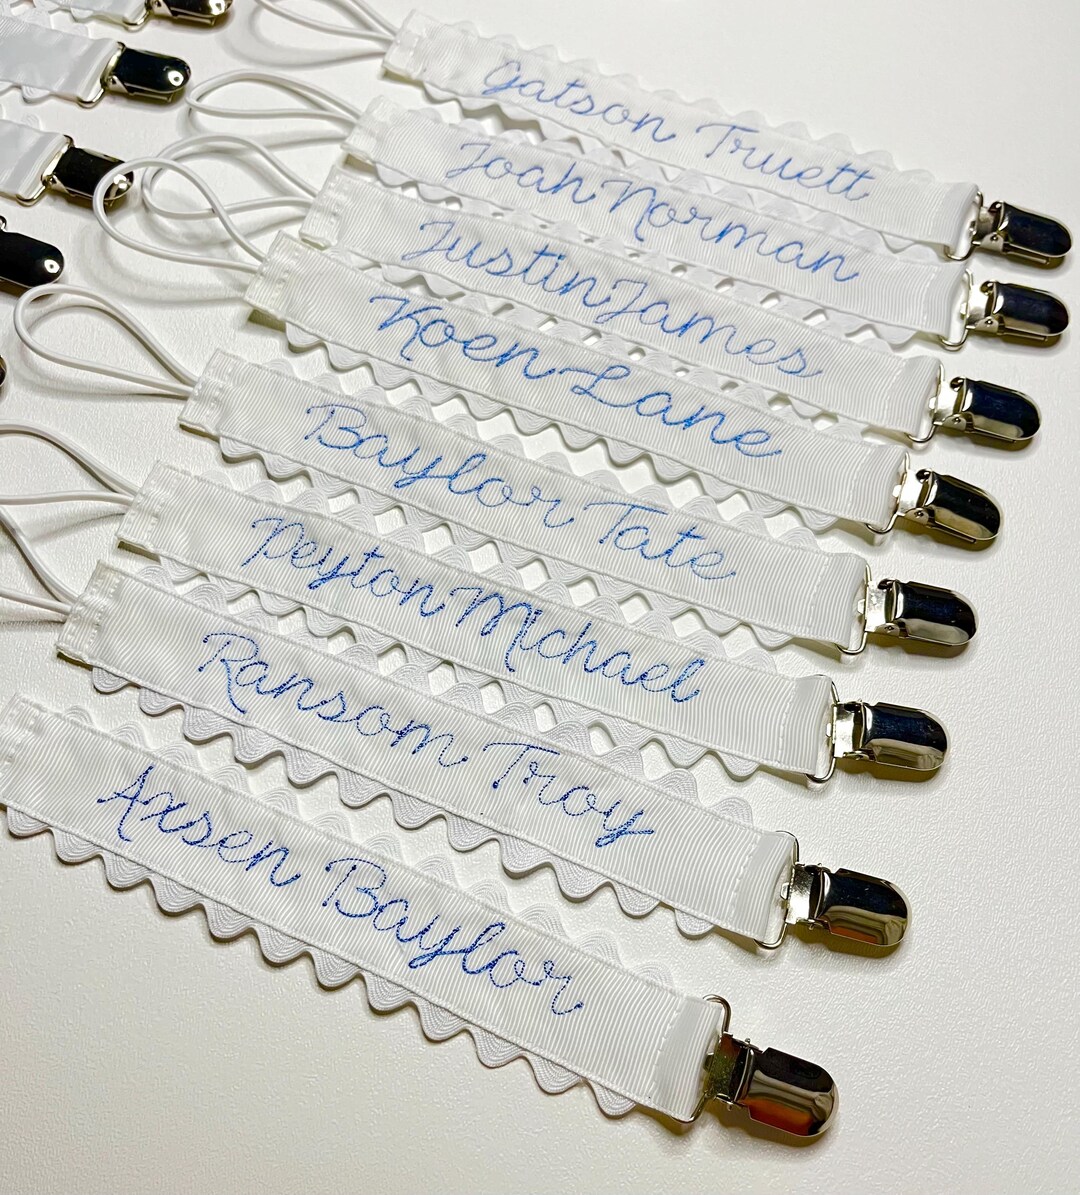 Gatson Truett
Joah Norman
Justin James
Koen Lane
Baylor Tate
Peyton Michael
Ransom Troy
Axsen Baylor